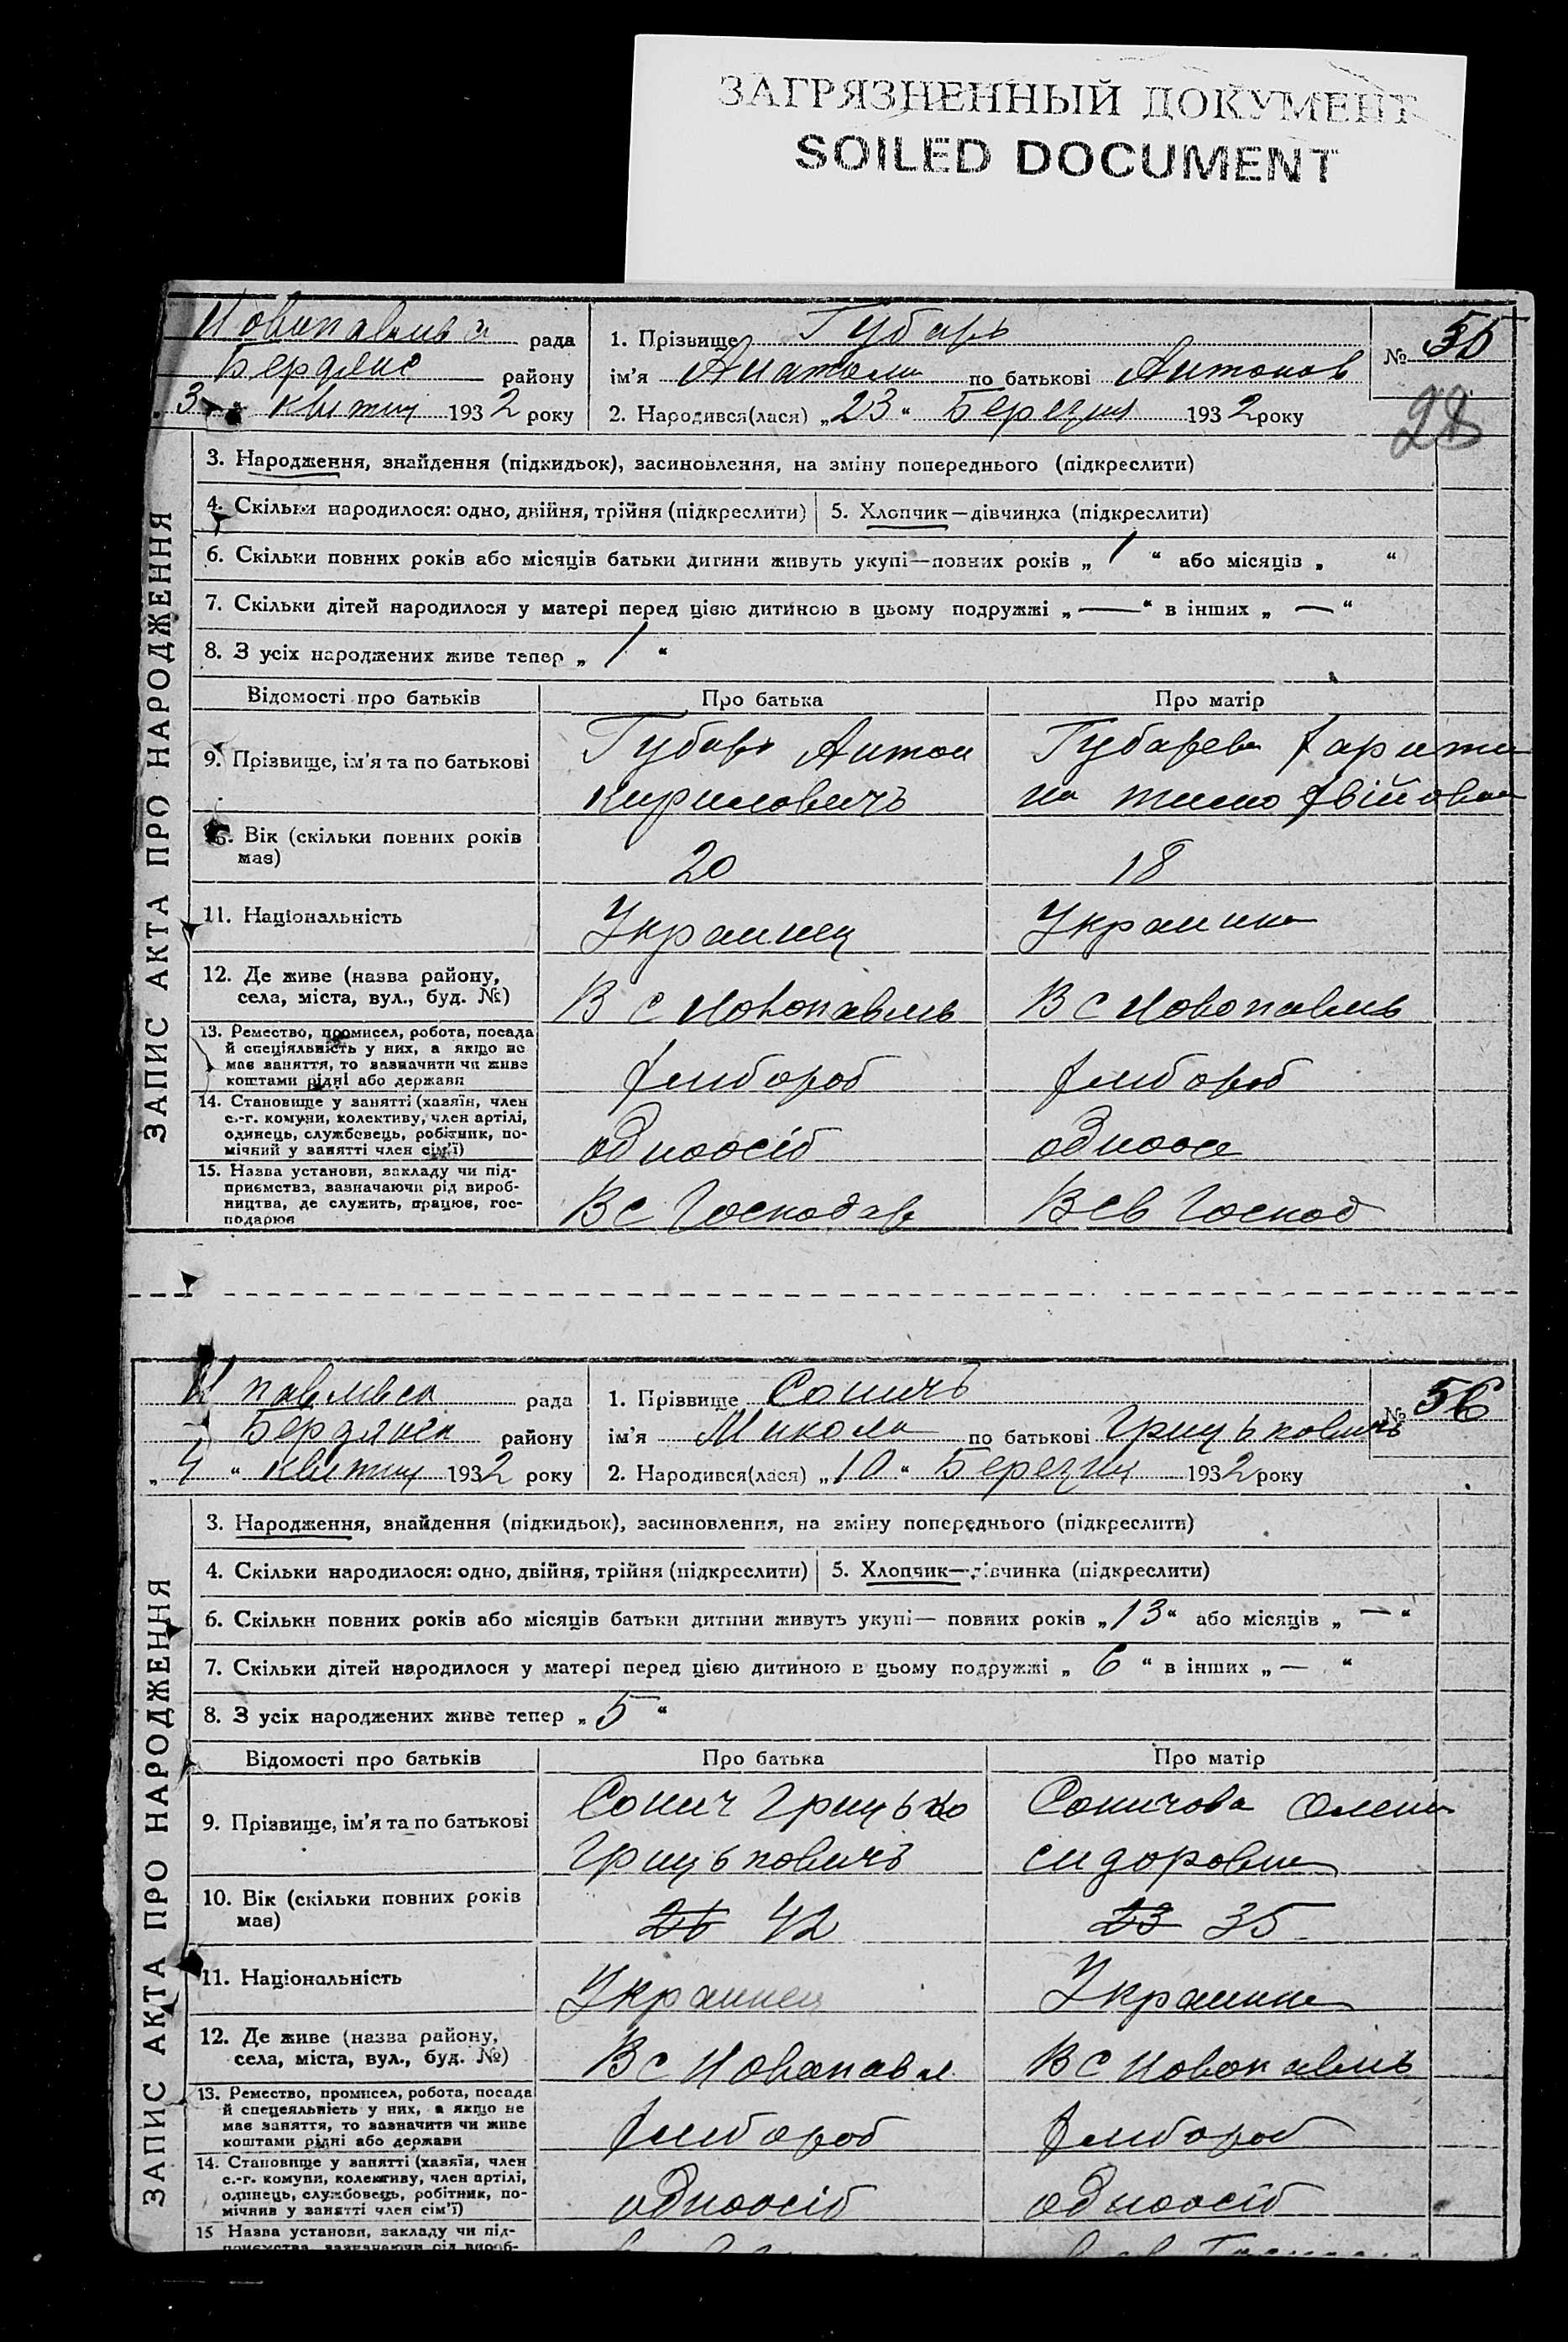 ЗАГРЯЗНЕННЫЙ ДОКУМЕНТ
SOILED DOCUMENT
рада
Бердянс району
„3" квитня 1932 року
1. Прізвище Губарь
ім'я Анатоли по батькові Антонов
2. Народився(лася) „23" Березня 1932 року
№ 55
28
ЗАПИС АКТА ПРО НАРОДЖЕННЯ
3. Народження, знайдення (підкидьок), засиновлення, на зміну попереднього (підкреслити)
4. Скільки народилося: одно, двійня, трійня (підкреслити) 5. Хлопчик—дівчинка (підкреслити)
6. Скільки повних років або місяців батьки дитини живуть укупі—повних років „1" або місяців „ "
7. Скільки дітей народилося у матері перед цією дитиною в цьому подружжі „—" в інших „—"
8. З усіх народжених живе тепер „1"
Відомості про батьків Про батька Про матір
9. Прізвище, ім'я та по батькові Губарь Антон Губарева
Кирилович
10. Вік (скільки повних років
має) 20 18
11. Національність Украинец Украинка
12. Де живе (назва району,
села, міста, вул., буд. №) В с Новопавль В с Новопавль
13. Ремество, промисел, робота, посада
й спеціяльність у них, а якщо не
має заняття, то зазначити чи живе
коштами рідні або держави
хлибороб хлибороб
14. Становище у занятті (хазяїн, член
с.-г. комуни, колективу, член артілі,
одинець, службовець, робітник, по-
мічний у занятті член сім'ї)
одноосіб одноос
15. Назва установи, закладу чи під-
приємства, зазначаючи рід вироб-
ництва, де служить, працює, гос-
подарює
В с Господар В св Господ
Н павлівса рада
Бердянса району
„4" квитня 1932 року
1. Прізвище Сонич
ім'я Микола по батькові Грицькович
2. Народився(лася) „10" Березня 1932 року
№ 56
ЗАПИС АКТА ПРО НАРОДЖЕННЯ
3. Народження, знайдення (підкидьок), засиновлення, на зміну попереднього (підкреслити)
4. Скільки народилося: одно, двійня, трійня (підкреслити) 5. Хлопчик—дівчинка (підкреслити)
6. Скільки повних років або місяців батьки дитини живуть укупі— повних років „13" або місяців „—"
7. Скільки дітей народилося у матері перед цією дитиною в цьому подружжі „6" в інших „—"
8. З усіх народжених живе тепер „5"
Відомості про батьків Про батька Про матір
9. Прізвище, ім'я та по батькові Сонич Грицько Соничова Олена
Грицькович сидоровна
10. Вік (скільки повних років
має) 26 42 23 35
11. Національність Украинец Украинка
12. Де живе (назва району,
села, міста, вул., буд. №) В с Новопавл В с Новопавль
13. Ремество, промисел, робота, посада
й спецеяльність у них, а якщо не
має заняття, то зазначити чи живе
коштами рідні або держави
хлибороб хлибороб
14. Становище у занятті (хазяїн, член
с.-г. комуни, колективу, член артілі,
одинець, службовець, робітник, по-
мічний у занятті член сім'ї)
одноосіб одноосіб
15 Назва установи, закладу чи під-
приємства, зазначаючи рід вироб-